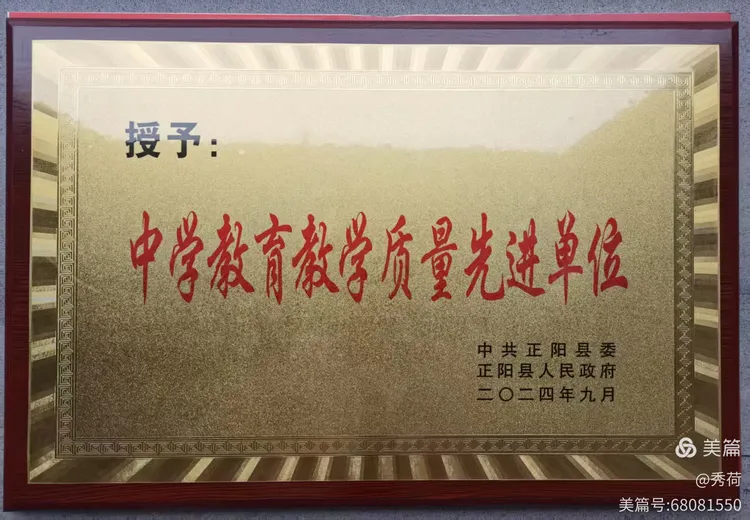 授予：
中学教育教学质量先进单位
中共正阳县委
正阳县人民政府
二〇二四年九月
美篇
@秀荷
美篇号:68081550